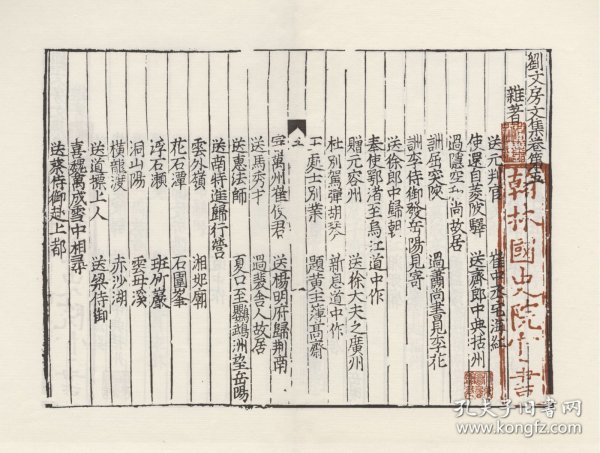 劉文房文集卷第五
雜著
送元判官
使還自菱陂驛 送齊郎中典括州
過隱空和尚故居
訓屈突陝 過蕭尚書見李花
訓李侍御發岳陽見寄
送徐郎中歸朝
奉使鄂渚至烏江道中作
贈元容州 送徐大夫之廣州
杜別駕彈胡琴 新息道中作
王處士別業 題黄主簿髙齋
五 一
萬州崔使君 送楊明府歸荆南
送馬秀才 過裴舍人故居
送惠法師 夏口至鸚鵡洲望岳陽
送南特進歸行營
雲外嶺 湘妃廟
花石潭 石圍峯
浮石瀬 班竹嚴
洞山陽 雲母溪
橫龍渡 赤沙湖
送道標上人 送梁侍御
喜魏萬成雪中相尋
送蔡侍御赴上都
翰林國史院官書
孔夫子旧书网
www.kongfz.com